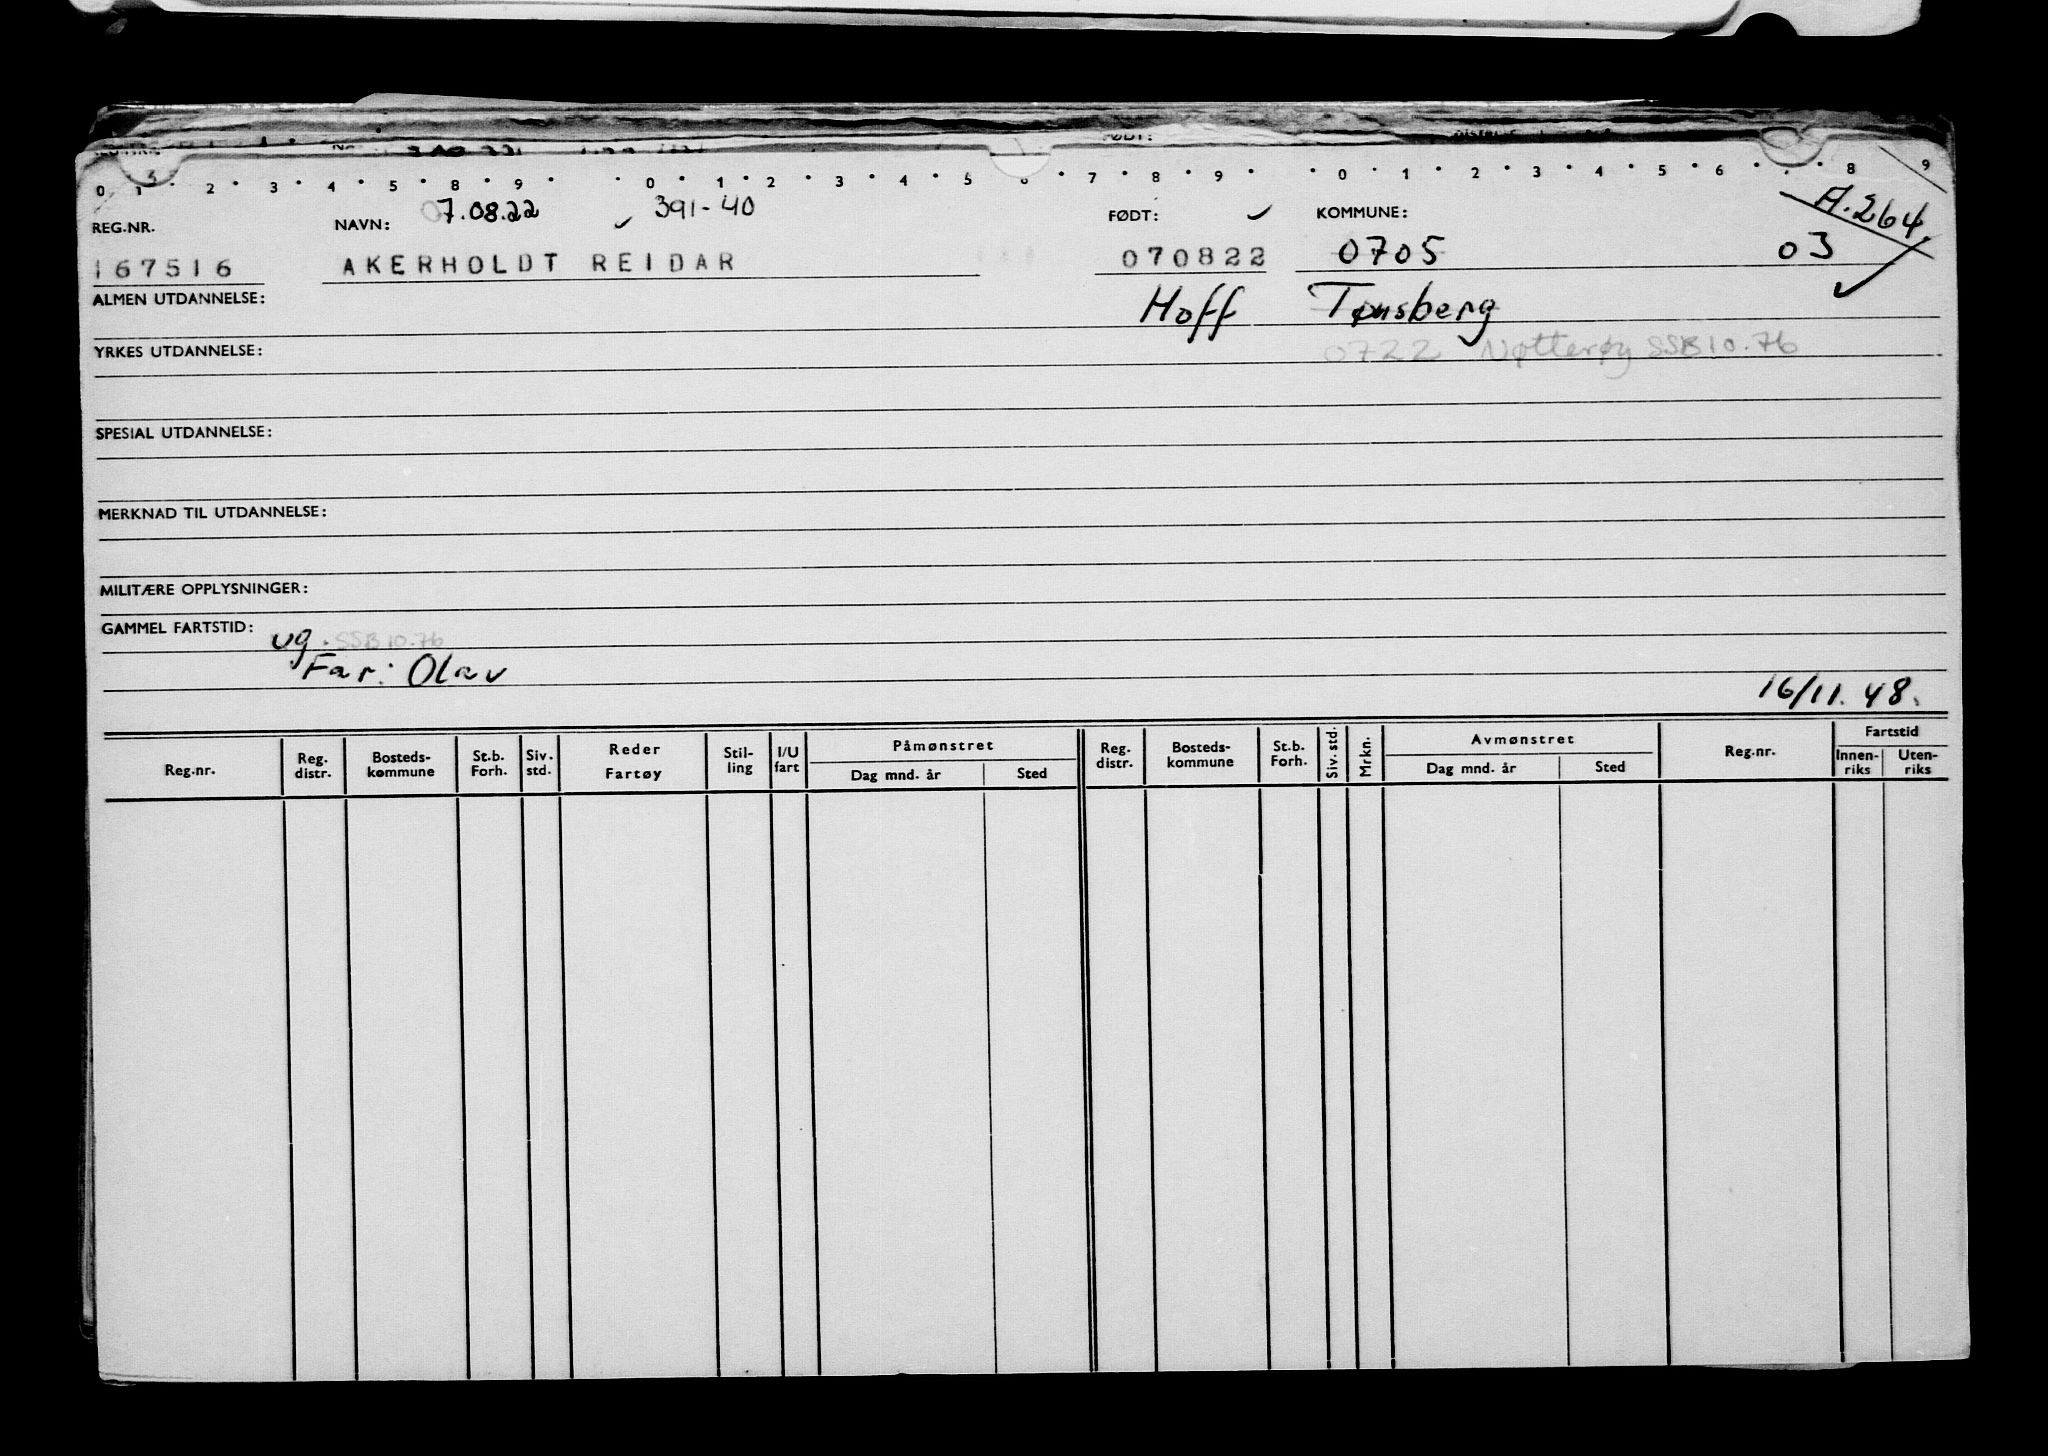 0 1 2 3 4 5 8 9 0 1 2 3 4 5 7 8 9 0 1 2 3 4 5 6 8 9
7.08.22 391-40 A.264
REG.NR. NAVN: FØDT: KOMMUNE:
167516 AKERHOLDT REIDAR 070822 0705 03
ALMEN UTDANNELSE: Hoff Tønsberg
YRKES UTDANNELSE: 0722 Nøtterøy SSB 10.76
SPESIAL UTDANNELSE:
MERKNAD TIL UTDANNELSE:
MILITÆRE OPPLYSNINGER:
GAMMEL FARTSTID: ug. SSB 10.76
Far: Olav
16/11.48.
Reg.nr. Reg. distr. Bosteds- kommune St.b. Forh. Siv. std. Reder Fartøy Stil- ling I/U fart Påmønstret Dag mnd. år Sted Reg. distr. Bosteds- kommune St.b. Forh. Siv. std. Mrkn. Avmønstret Dag mnd. år Sted Reg.nr. Fartstid Innen- riks Uten- riks